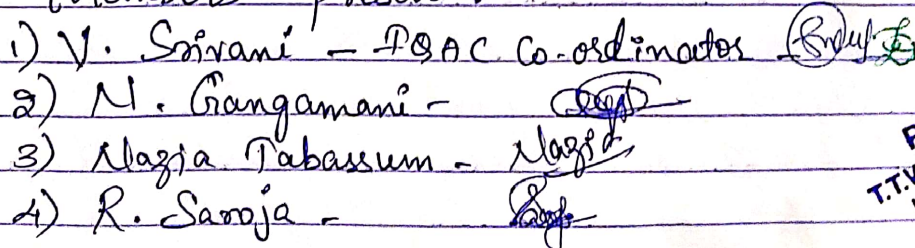 1) V. Srivani - IQAC Co-ordinator
2) N. Gangamani -
3) Nazia Tabassum - Nazia
4) R. Saroja -
T.T.W